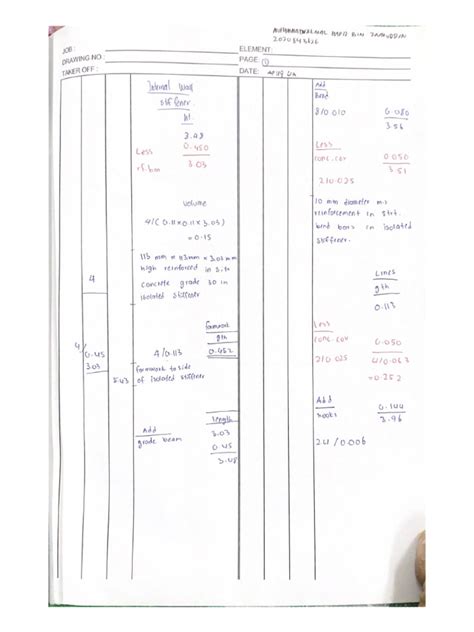 JOB :
DRAWING NO :
TAKER OFF :
ELEMENT:
PAGE: 1
DATE:
Internal Wall
stiffener
ht
3.48
Less 0.450
rf. bm 3.03
volume
4/(0.11x0.11x3.03)
= 0.15
113 mm x 113mm x 3.03mm
high reinforced in s.tu
4
concrete grade 30 in
isolated stiffener
formwork
gth
4/
0.45
3.03
4/0.113
0.452
formwork to side
5.43
of isolated stiffener
Length
Add 3.03
grade beam 0.45
3.48
Add
Bend
8/0.010 0.080
3.56
Less
conc. cov 0.050
2/0.025 3.51
10 mm diameter m.s
reinforcement in strt.
bend bars in isolated
stiffener.
Links
gth
0.113
Less
conc. cov 0.050
2/0.025 4/0.063
= 0.252
Add 0.144
hooks 3.96
24/0.006